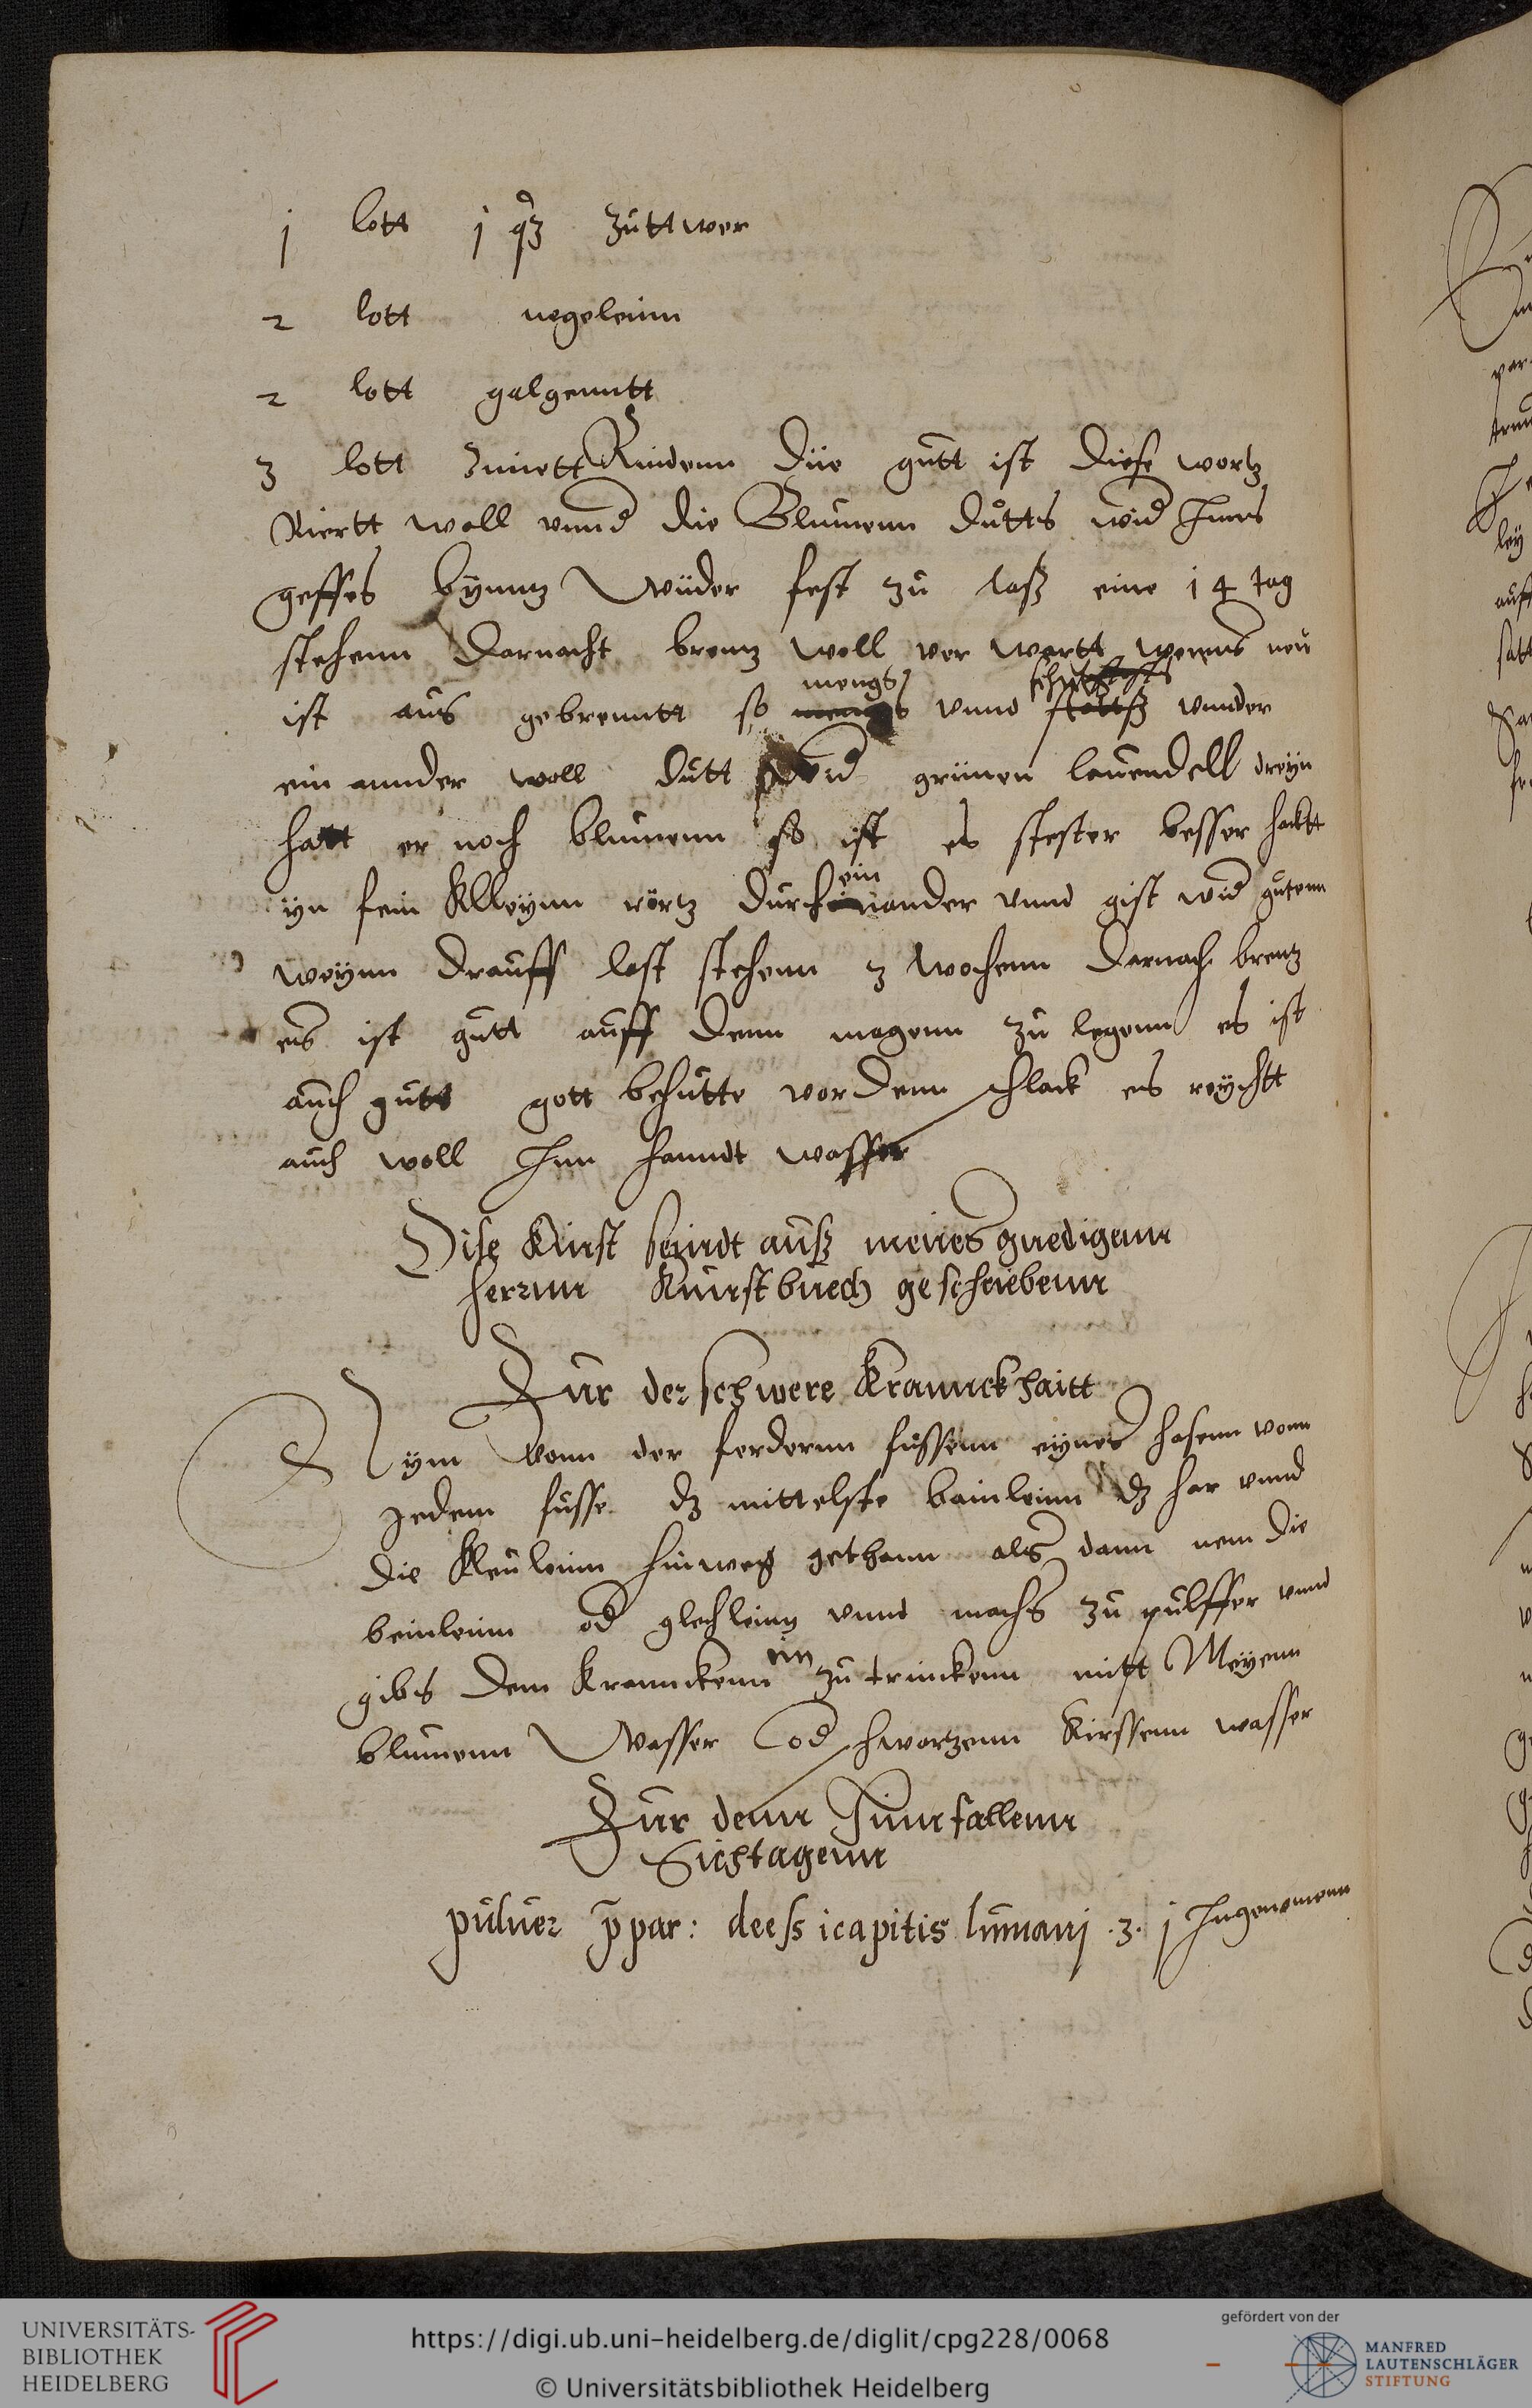 j lott j q̃z zuttwer
2 lott negeleinn
2 lott galgenntt
3 lott Zimett Rindenn die gutt ist diese wortz
Riertt woll vnnd die Blumenn dutts wid Inns
geffes bynntz wüder fest zu lasß eine 14 tag
stehenn darnacht brenntz woll ver wartt wenns neu
ist aus gebrenntt so mengs vnnd vnnder
ein annder woll dutt grünen lauendell dreyn
hatt er noch blumenn so ist es stester besser hacktt
yn fein Klleynn rörtz durch einander vnnd gist wid gutenn
weynn drauff lest stehenn 3 wochenn darnach brentz
eß ist gutt auff denn magenn zu legenn es ist
auch gutt gott behutte vor denn schlack es reychtt
auch woll Inn hanndt wasser
Dise Kunst seindt ausß meines gnedigenn
herrnn Kunstbuech geschriebenn
Fur der schwere Kranncckhaitt
Nym vonn der fordernn fussenn eynes hasenn vonn
Jedem fusse dz mittelste bainleinn dz har vnnd
die Kleuleinn hinweg gethann als dann nem die
beinleinn od glechleinn vnnd machs zu pulffer vnnd
gibs dem Kranckenn ein zu trinckenn mitt Meyenn
blumenn Wasser od schwartzenn Kirssenn wasser
Fur denn Hinnfallenn
Sichtagenn
puluer p̄par: de ess icapitis humanj .3. j Ingenomenn
UNIVERSITÄTS-
BIBLIOTHEK
HEIDELBERG
https://digi.ub.uni-heidelberg.de/diglit/cpg228/0068
© Universitätsbibliothek Heidelberg
gefördert von der
MANFRED
LAUTENSCHLÄGER
STIFTUNG